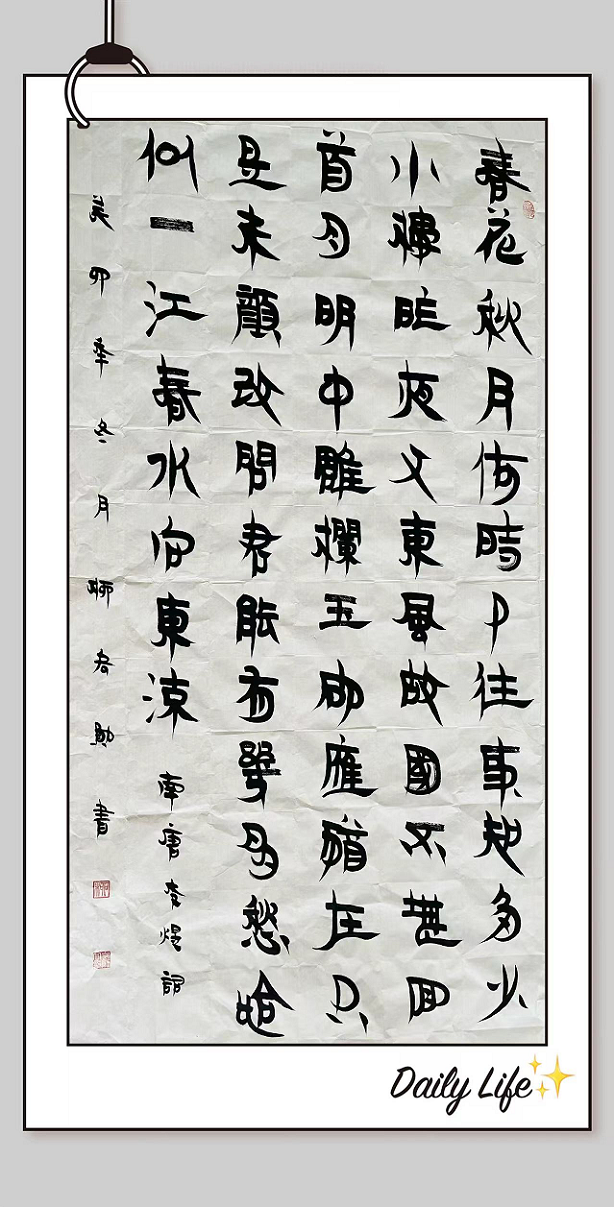 春花秋月何時了往事知多少
小樓昨夜又東風故國不堪回
首月明中雕欄玉砌應猶在只
是朱顏改問君能有幾多愁恰
似一江春水向東流 南唐李煜詞
癸卯年冬月 書
Daily Life